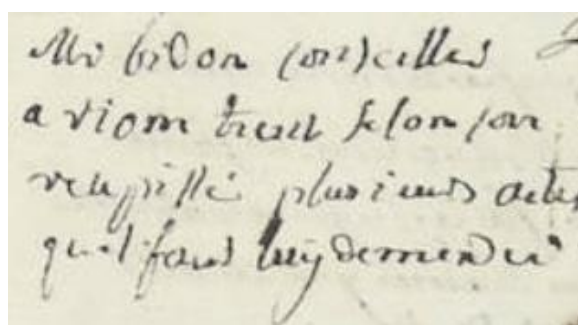 Mr bidon conseiller
a riom tient selon son
recepissé plusieurs actes
quil faut luy demander